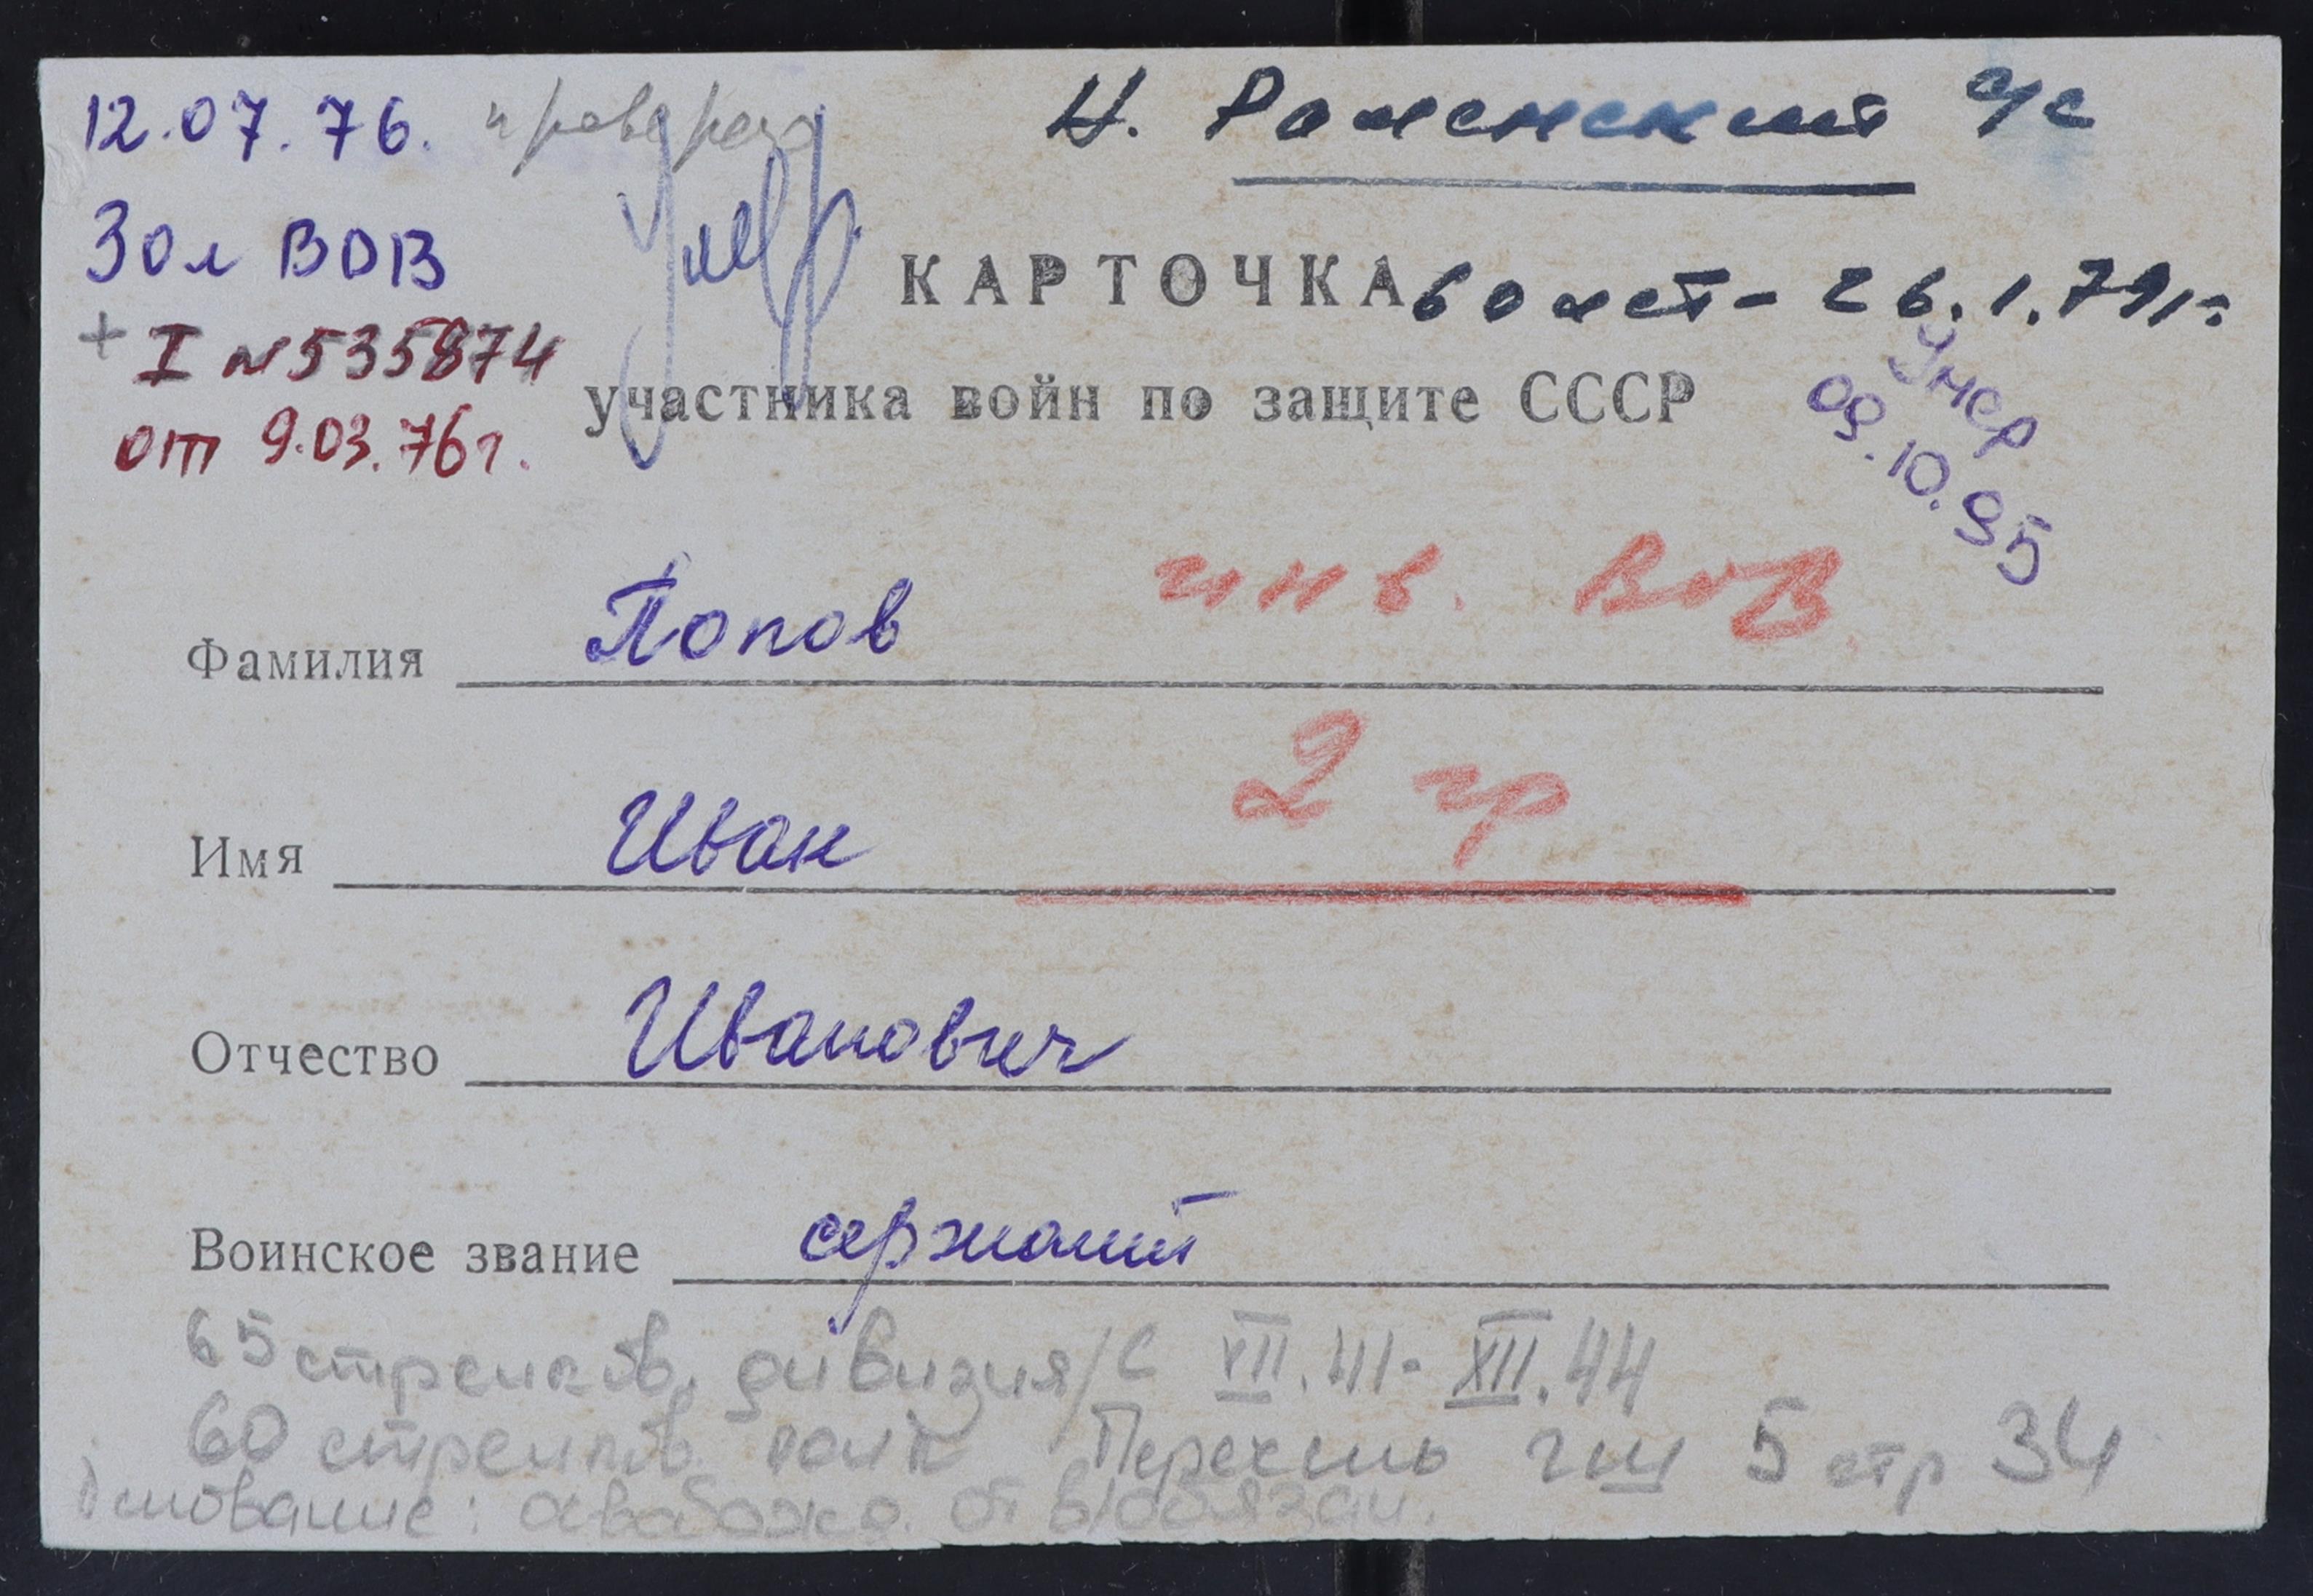 12.07.76. проверено
Н. Раменский с/с
30 л ВОВ
Умер
КАРТОЧКА 60 лет - 26.1.79 г.
+ I N 535874
участника войн по защите СССР
от 9.03.76 г.
Умер
09.10.95
Фамилия Попов инв. ВОВ
Имя Иван 2 гр
Отчество Иванович
Воинское звание сержант
65 стрелков. дивизия/с VII.41 - XII.44
60 стрелков. полк Перечень гш 5 стр 34
Основание: освобожд. от в/обязан.